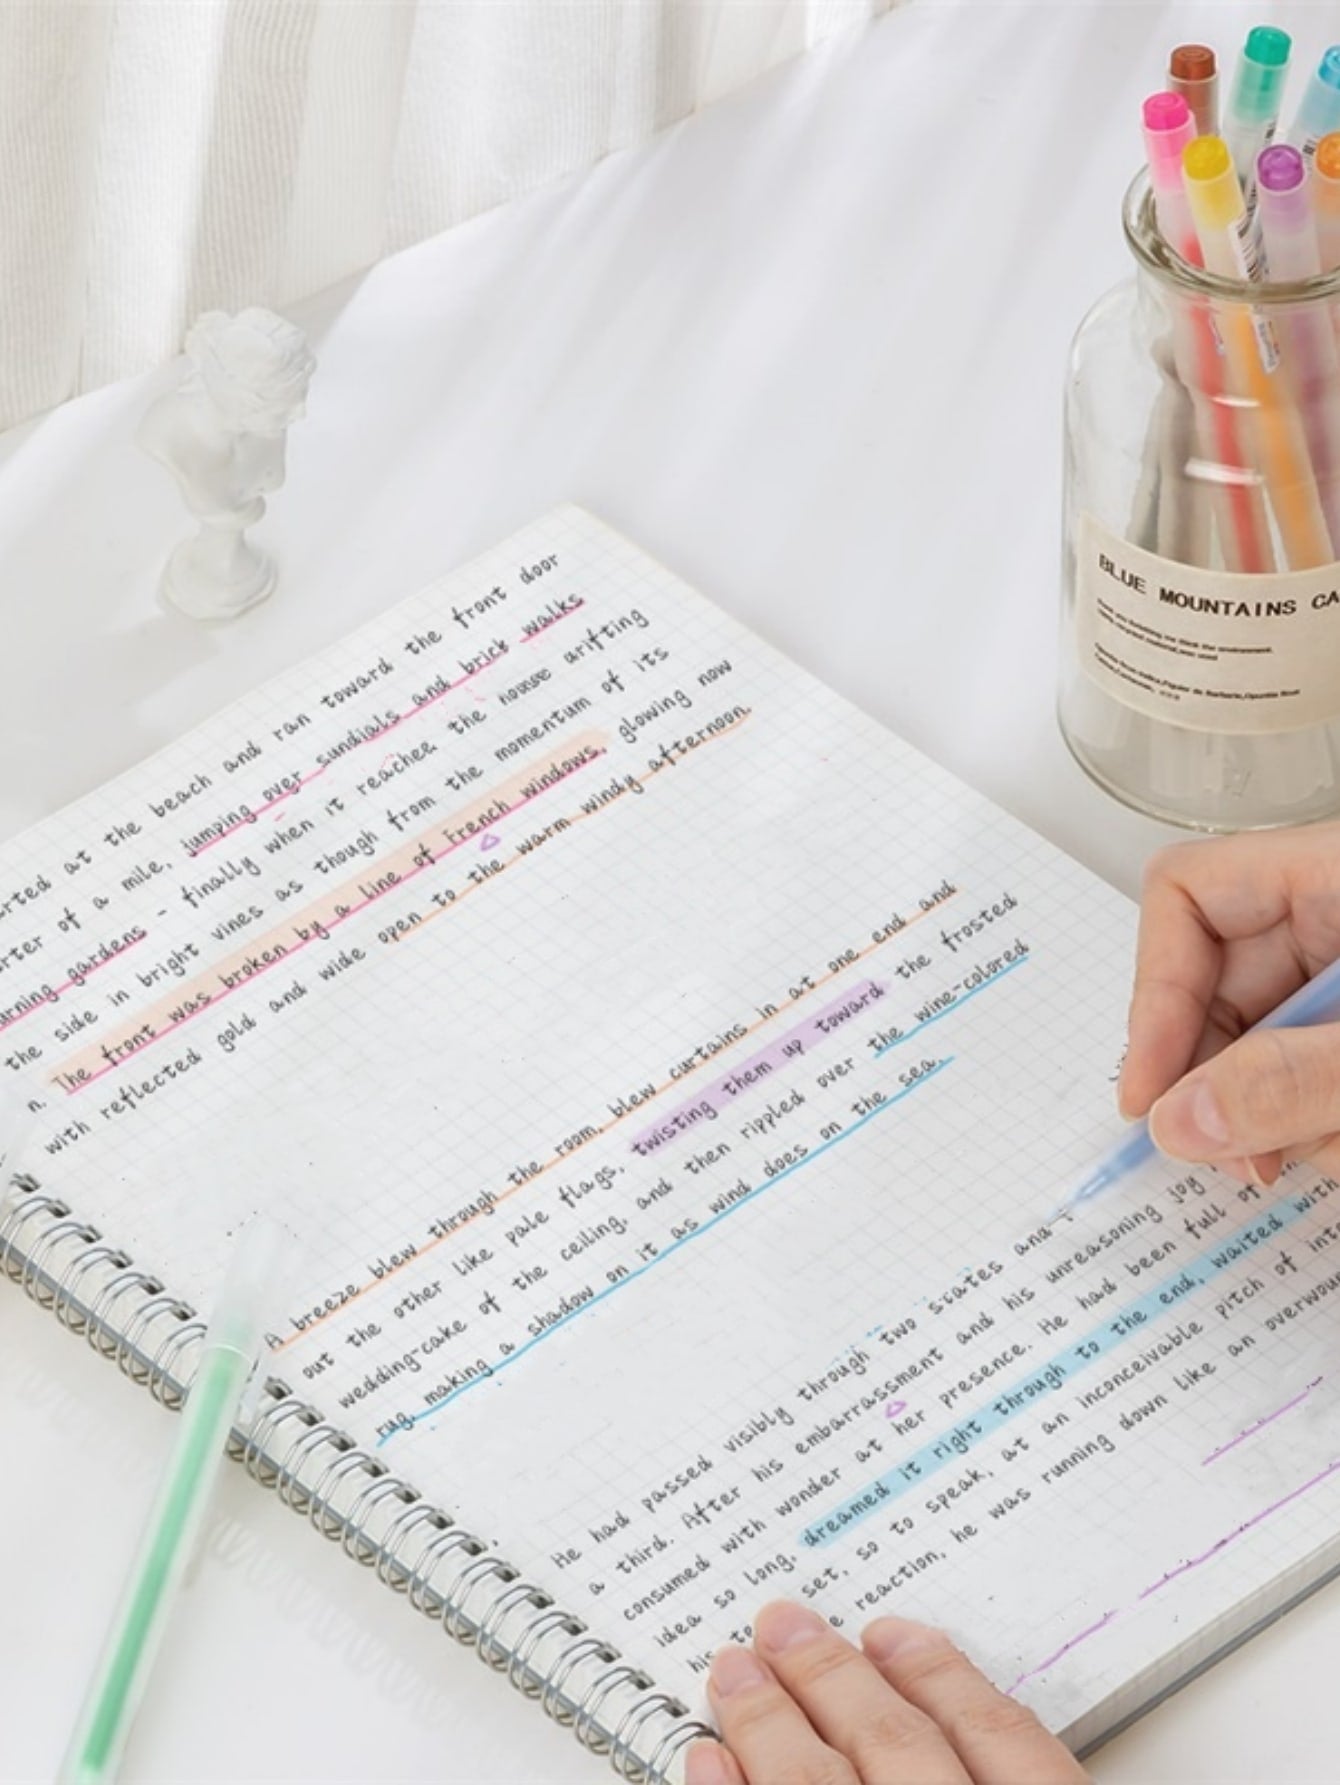 at the beach and ran toward the front door
of a mile, jumping over sundials and brick walks
gardens - finally when it reached the house drifting
the side in bright vines as though from the momentum of its
n. The front was broken by a line of French windows, glowing now
with reflected gold and wide open to the warm windy afternoon.
A breeze blew through the room, blew curtains in at one end and
out the other like pale flags, twisting them up toward the frosted
wedding-cake of the ceiling, and then rippled over the wine-colored
rug, making a shadow on it as wind does on the sea.
He had passed visibly through two states and
a third. After his embarrassment and his unreasoning joy
consumed with wonder at her presence. He had been full of
idea so long, dreamed it right through to the end, waited with
his set, so to speak, at an inconceivable pitch of
reaction, he was running down like an
BLUE MOUNTAINS CA